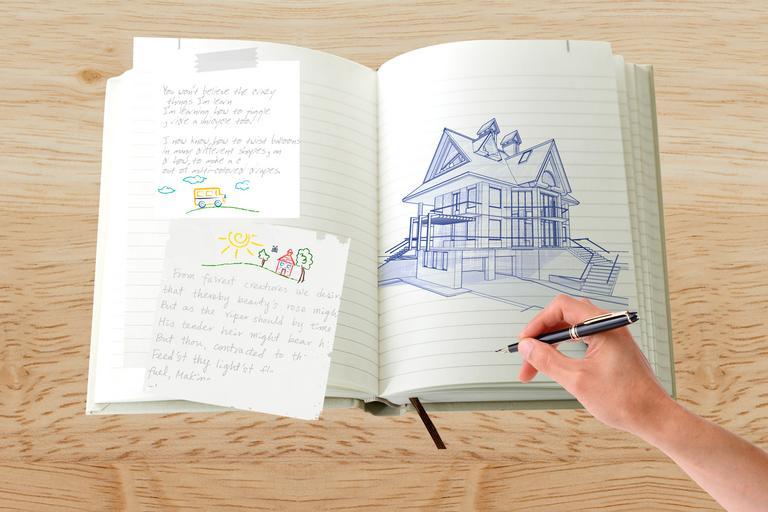 You won't believe the crazy
things I'm learn
I'm learning how to juggle
, ride a unicycle too!!
I now know how to twist balloons
in many different shapes, an
d how to make a c
out of multi-colored drapes.
From fairest creatures we desir
that thereby beauty's rose migh
But as the riper should by time
His tender heir might bear h
But thou, contracted to th
Feed'st thy light'st fl
fuel, Makin